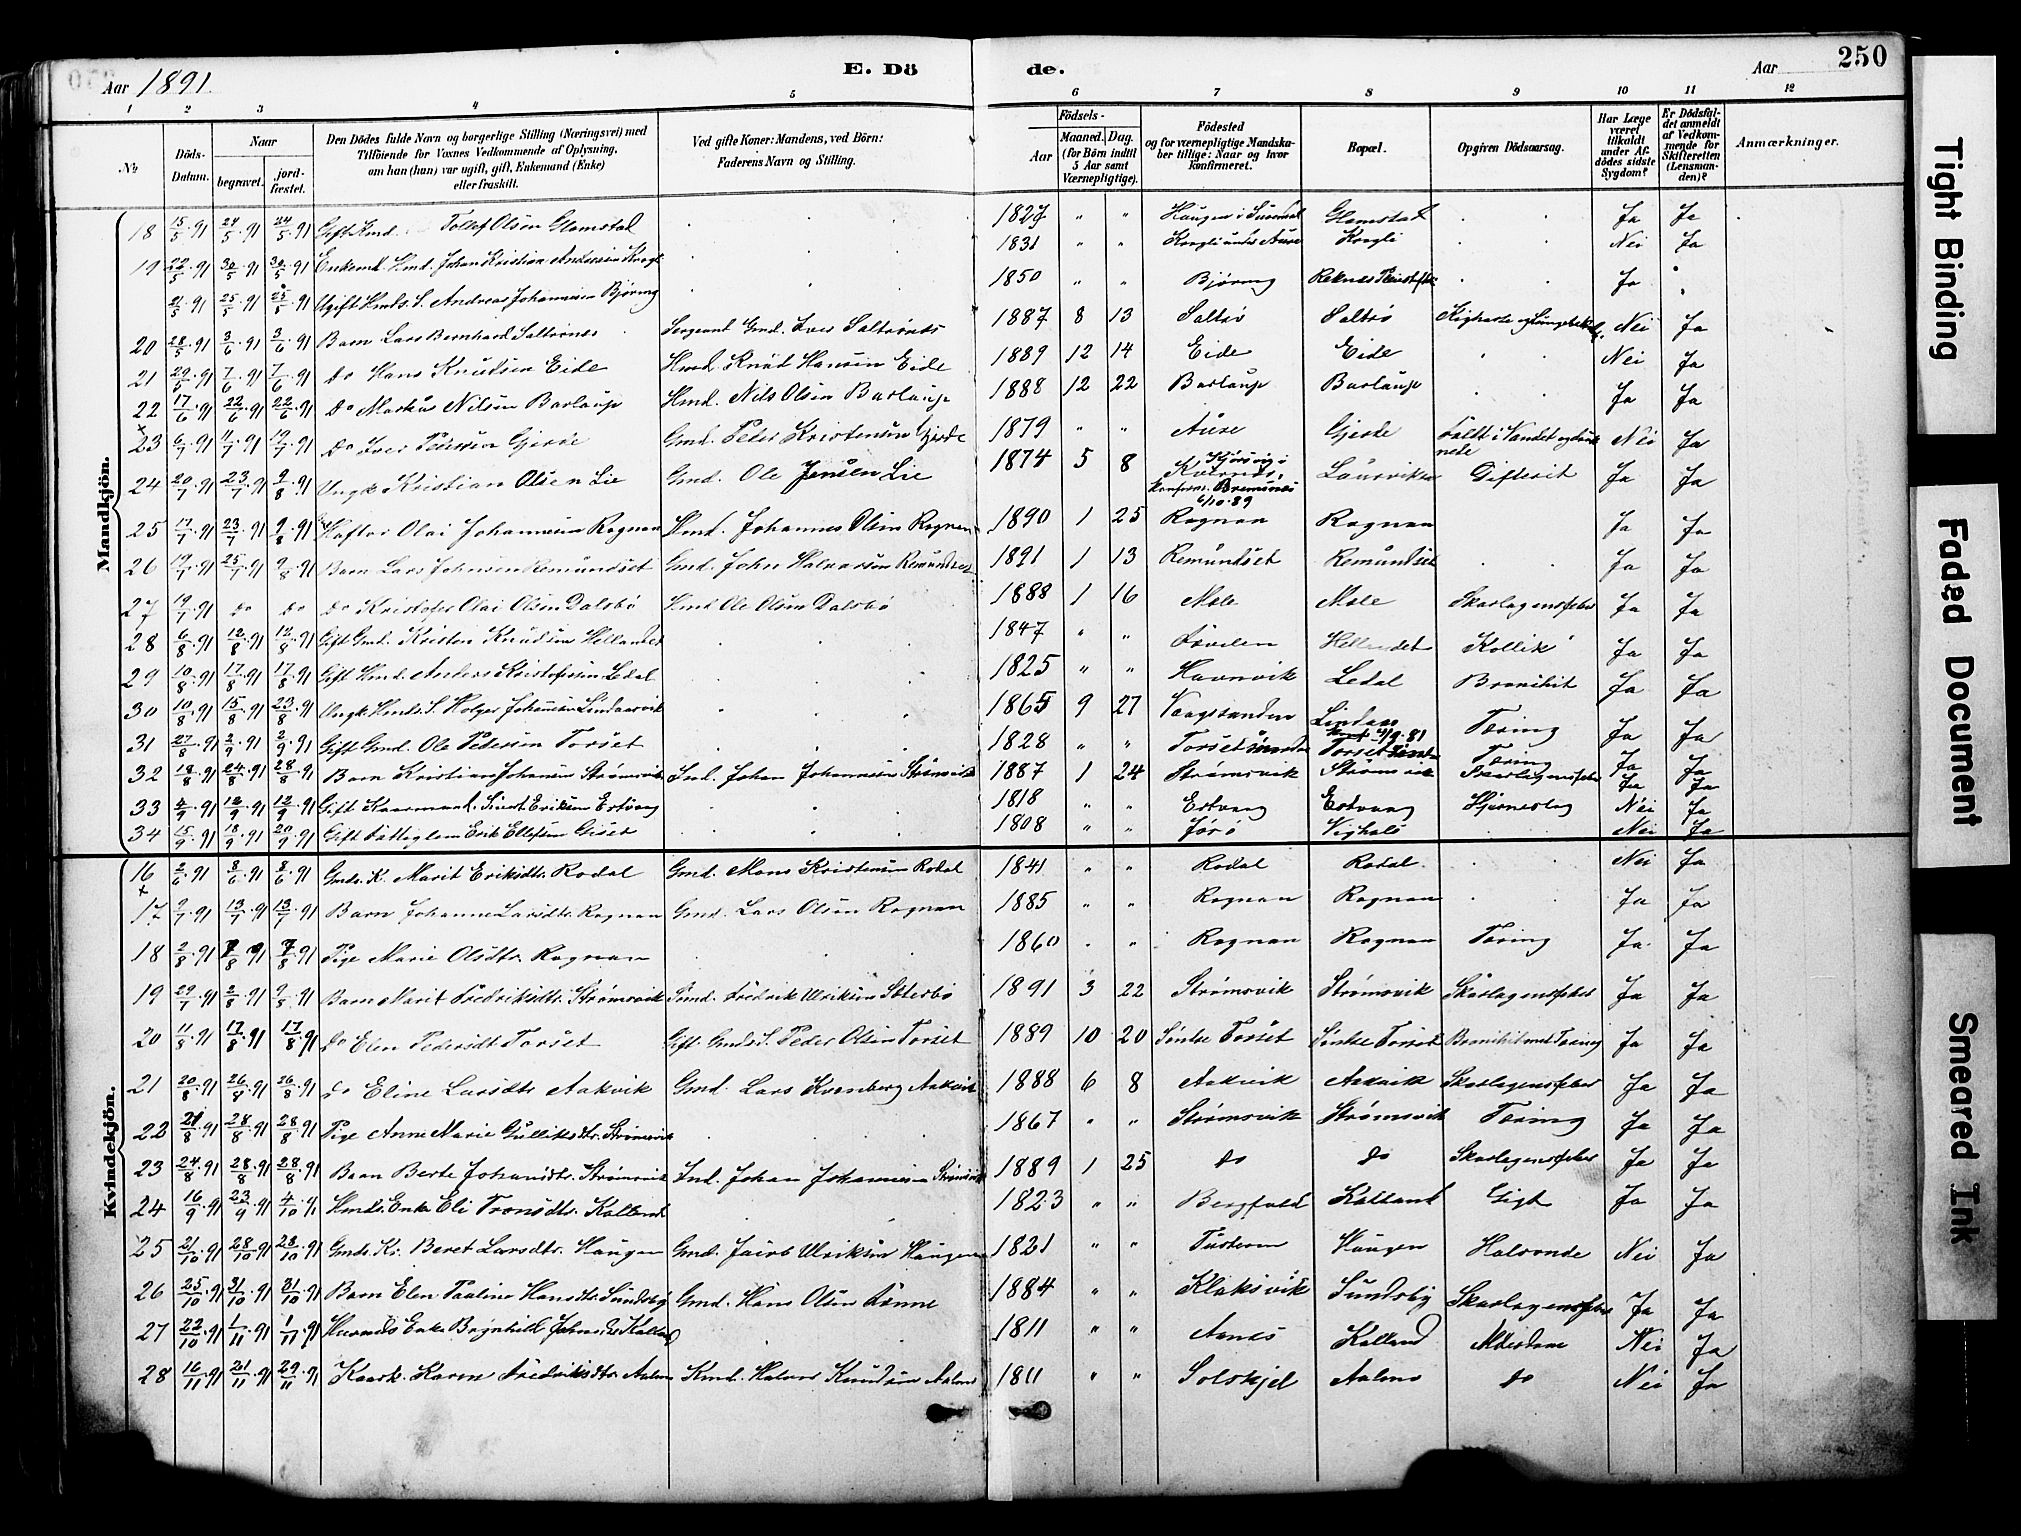 250
Aar 1891.
E. Dö de.
Aar
1 2 3 4 5 6 7 8 9 10 11 12
No
Döds-Datum.
Naar
begravet.
jord-fæstet.
Den Dödes fulde Navn og borgerlige Stilling (Næringsvei) med Tilföiende for Voxnes Vedkommende af Oplysning, om han (hun) var ugift, gift, Enkemand (Enke) eller fraskilt.
Ved gifte Koner: Mandens, ved Börn: Faderens Navn og Stilling.
Födsels-
Aar
Maaned. Dag.
(for Börn indtil 5 Aar samt Værnepligtige).
Födested og for værnepligtige Mandskaber tillige: Naar og hvor konfirmeret.
Bopæl.
Opgiven Dödsaarsag.
Har Læge været tilkaldt under Afdödes sidste Sygdom?
Er Dödsfaldet anmeldt af Vedkommende for Skifteretten (Lensmanden)?
Anmærkninger.
Mandkjön.
18 15/5 91 24/5 91 24/5 91 Gift Kmd. Tollef Olsen Glamstad 1827 " " Haugen i Glamstad Ja Ja
19 22/5 91 30/5 91 30/5 91 Enkemd. Hmd. Johan Kristian Andersen 1831 " " Nei Ja
21/5 91 25/5 91 25/5 91 Ugift Hmds. S. Andreas Johannesen Björing 1850 " " Björing Ja "
20 28/5 91 3/6 91 3/6 91 Barn Lars Bernhard Saltrönes Sergeant Gmd. Iver Saltrönes 1887 8 13 Saltrö Saltrö Nei Ja
21 29/5 91 7/6 91 7/6 91 do Hans Knudsen Eide Hmd. Knud Hansen Eide 1889 12 14 Eide Eide Nei Ja
22 17/6 91 22/6 91 22/6 91 do Markus Nilsen Barlaup Hmd. Nils Olsen Barlaup 1888 12 22 Barlaup Barlaup Ja Ja
23 6/7 91 11/7 91 19/7 91 do Iver Pedersen Gjerde Gmd. Peder Kristensen Gjerde 1879 " " Aure Gjerde Faldt i Vandet og druknede Nei Ja
24 20/7 91 23/7 91 9/8 91 Ungk. Kristian Olsen Lie Gmd. Ole Jensen Lie 1874 5 8 Kvernes, konfirm. Bremsnes 6/10 89 Laurviken Gifterit Ja Ja
25 17/7 91 23/7 91 9/8 91 Olai Johannesen Rognan Hmd. Johannes Olsen Rognan 1890 1 25 Rognan Rognan Ja Ja
26 19/7 91 25/7 91 9/8 91 Barn Lars Johnsen Remundset Gmd. John Halvorsen Remundset 1891 1 13 Remundset Remundset Ja Ja
27 19/7 91 do do do Kristofer Olai Olsen Dalsbö Hmd Ole Olsen Dalsbö 1888 1 16 Mele Mele Skarlagensfeber Ja Ja
28 6/8 91 12/8 91 12/8 91 Gift Gmd. Kristen Knudsen Hellandet 1847 " " Hellandet Kollik Ja Ja
29 10/8 91 17/8 91 17/8 91 Gift Hmd. Anders Kristofersen Ledal 1825 " " Havnvik Ledal Bronihit Ja Ja
30 10/8 91 15/8 91 23/8 91 Ungk. Hmds. S. Holger Johansen Lindaasvik 1865 9 27 Vaagstanden Lindaas Tæring Ja Ja
31 27/8 91 2/9 91 2/9 91 Gift Gmd. Ole Pedersen Torset 1828 " " Tæring Ja Ja
32 18/8 91 24/8 91 28/8 91 Barn Kristian Johansen Strömsvik Ind. Johan Johannesen Strömsvik 1887 1 24 Strömsvik Strömsvik Skarlagensfeber Ja Ja
33 4/9 91 12/9 91 12/9 91 Gift Sivert Eriksen Ertvaag 1818 " " Ertvaag Ertvaag Hjerneslag Nei Ja
34 15/9 91 18/9 91 20/9 91 Gift Fattiglem Erik Ellefsen Giset 1808 " " Nei Ja
Kvindekjön.
16 2/6 91 8/6 91 8/6 91 Gmds. K. Marit Eriksdtr. Rodal Gmd. Mons Kristensen Rodal 1841 " " Rodal Rodal Nei Ja
17 9/7 91 13/7 91 13/7 91 Barn Johanne Larsdtr. Rognan Gmd. Lars Olsen Rognan 1885 " " Rognan Rognan Ja Ja
18 2/8 91 7/8 91 7/8 91 Pige Marie Olsdtr. Rognan 1860 " " Rognan Rognan Tæring Ja Ja
19 29/7 91 2/8 91 9/8 91 Barn Marit Fredriksdtr. Strömsvik Fredrik Ulriksen Seterbö 1891 3 22 Strömsvik Strömsvik Skarlagensfeber Ja Ja
20 11/8 91 17/8 91 17/8 91 do Elen Pedersdt Torset Gift Gmds. S. Peder Olsen Torset 1889 10 20 Torset Torset Bronihit med Tæring Ja Ja
21 20/8 91 26/8 91 26/8 91 do Eline Larsdtr. Aakvik Gmd. Lars Kvenberg Aakvik 1888 6 8 Aakvik Aakvik Skarlagensfeber Ja Ja
22 21/8 91 28/8 91 28/8 91 Pige Anne Marie Gulliksdtr. Strömsvik 1867 " " Strömsvik Strömsvik Tæring Ja Ja
23 24/8 91 28/8 91 28/8 91 Barn Berte Johansdtr. Strömsvik Ind. Johan Johannesen Strömsvik 1889 1 25 do do Skarlagensfeber Ja Ja
24 16/9 91 23/9 91 4/10 91 Hmds. Enke Eli Tronsdtr. Kalland 1823 " " Bergfald Kalland Gigt Ja Ja
25 21/10 91 28/10 91 28/10 91 Gmds. K. Beret Larsdtr. Haugen Gmd. Jacob Ulriksen Haugen 1821 " " Tusteren Haugen Halsonde Nei Ja
26 25/10 91 31/10 91 31/10 91 Barn Elen Pauline Hansdtr. Sundsby Gmd. Hans Olsen 1884 " " Klaksvik Sundsby Skarlagensfeber Ja Ja
27 22/10 91 1/11 91 1/11 91 Enke Brynhild Johnsdtr Kalland 1811 " " Aanes Kalland Alderdom Nei Ja
28 16/11 91 21/11 91 29/11 91 Karen Fredriksdtr. Aalmo Kmd. Halvor Knudsen Aalmo 1811 " " Solskjel Aalmo do Nei Ja
Tight Binding
Faded Document
Smeared Ink